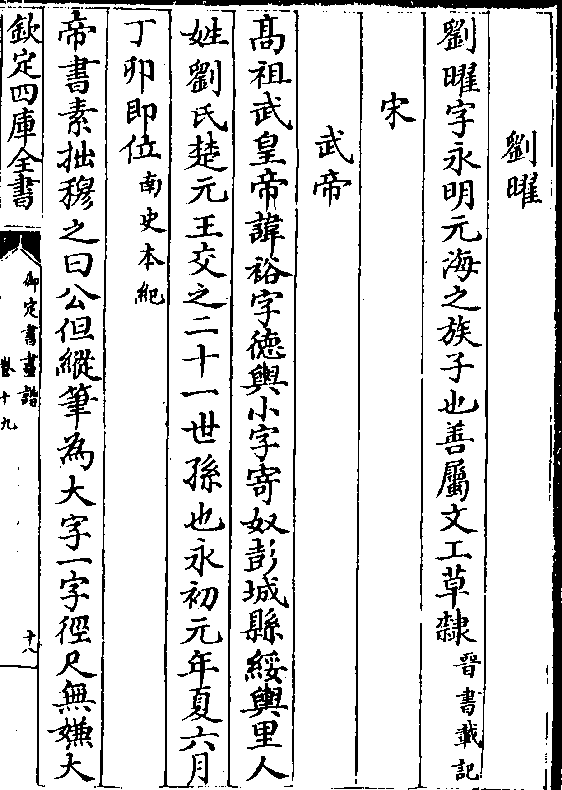 劉曜
劉曜字永明元海之族子也善屬文工草隸晉書載記
宋
武帝
高祖武皇帝諱裕字德輿小字寄奴彭城縣綏輿里人
姓劉氏楚元王交之二十一世孫也永初元年夏六月
丁卯即位南史本紀
帝書素拙穆之曰公但縱筆為大字一字徑尺無嫌大
欽定四庫全書
御定書畫譜
卷十九
十八